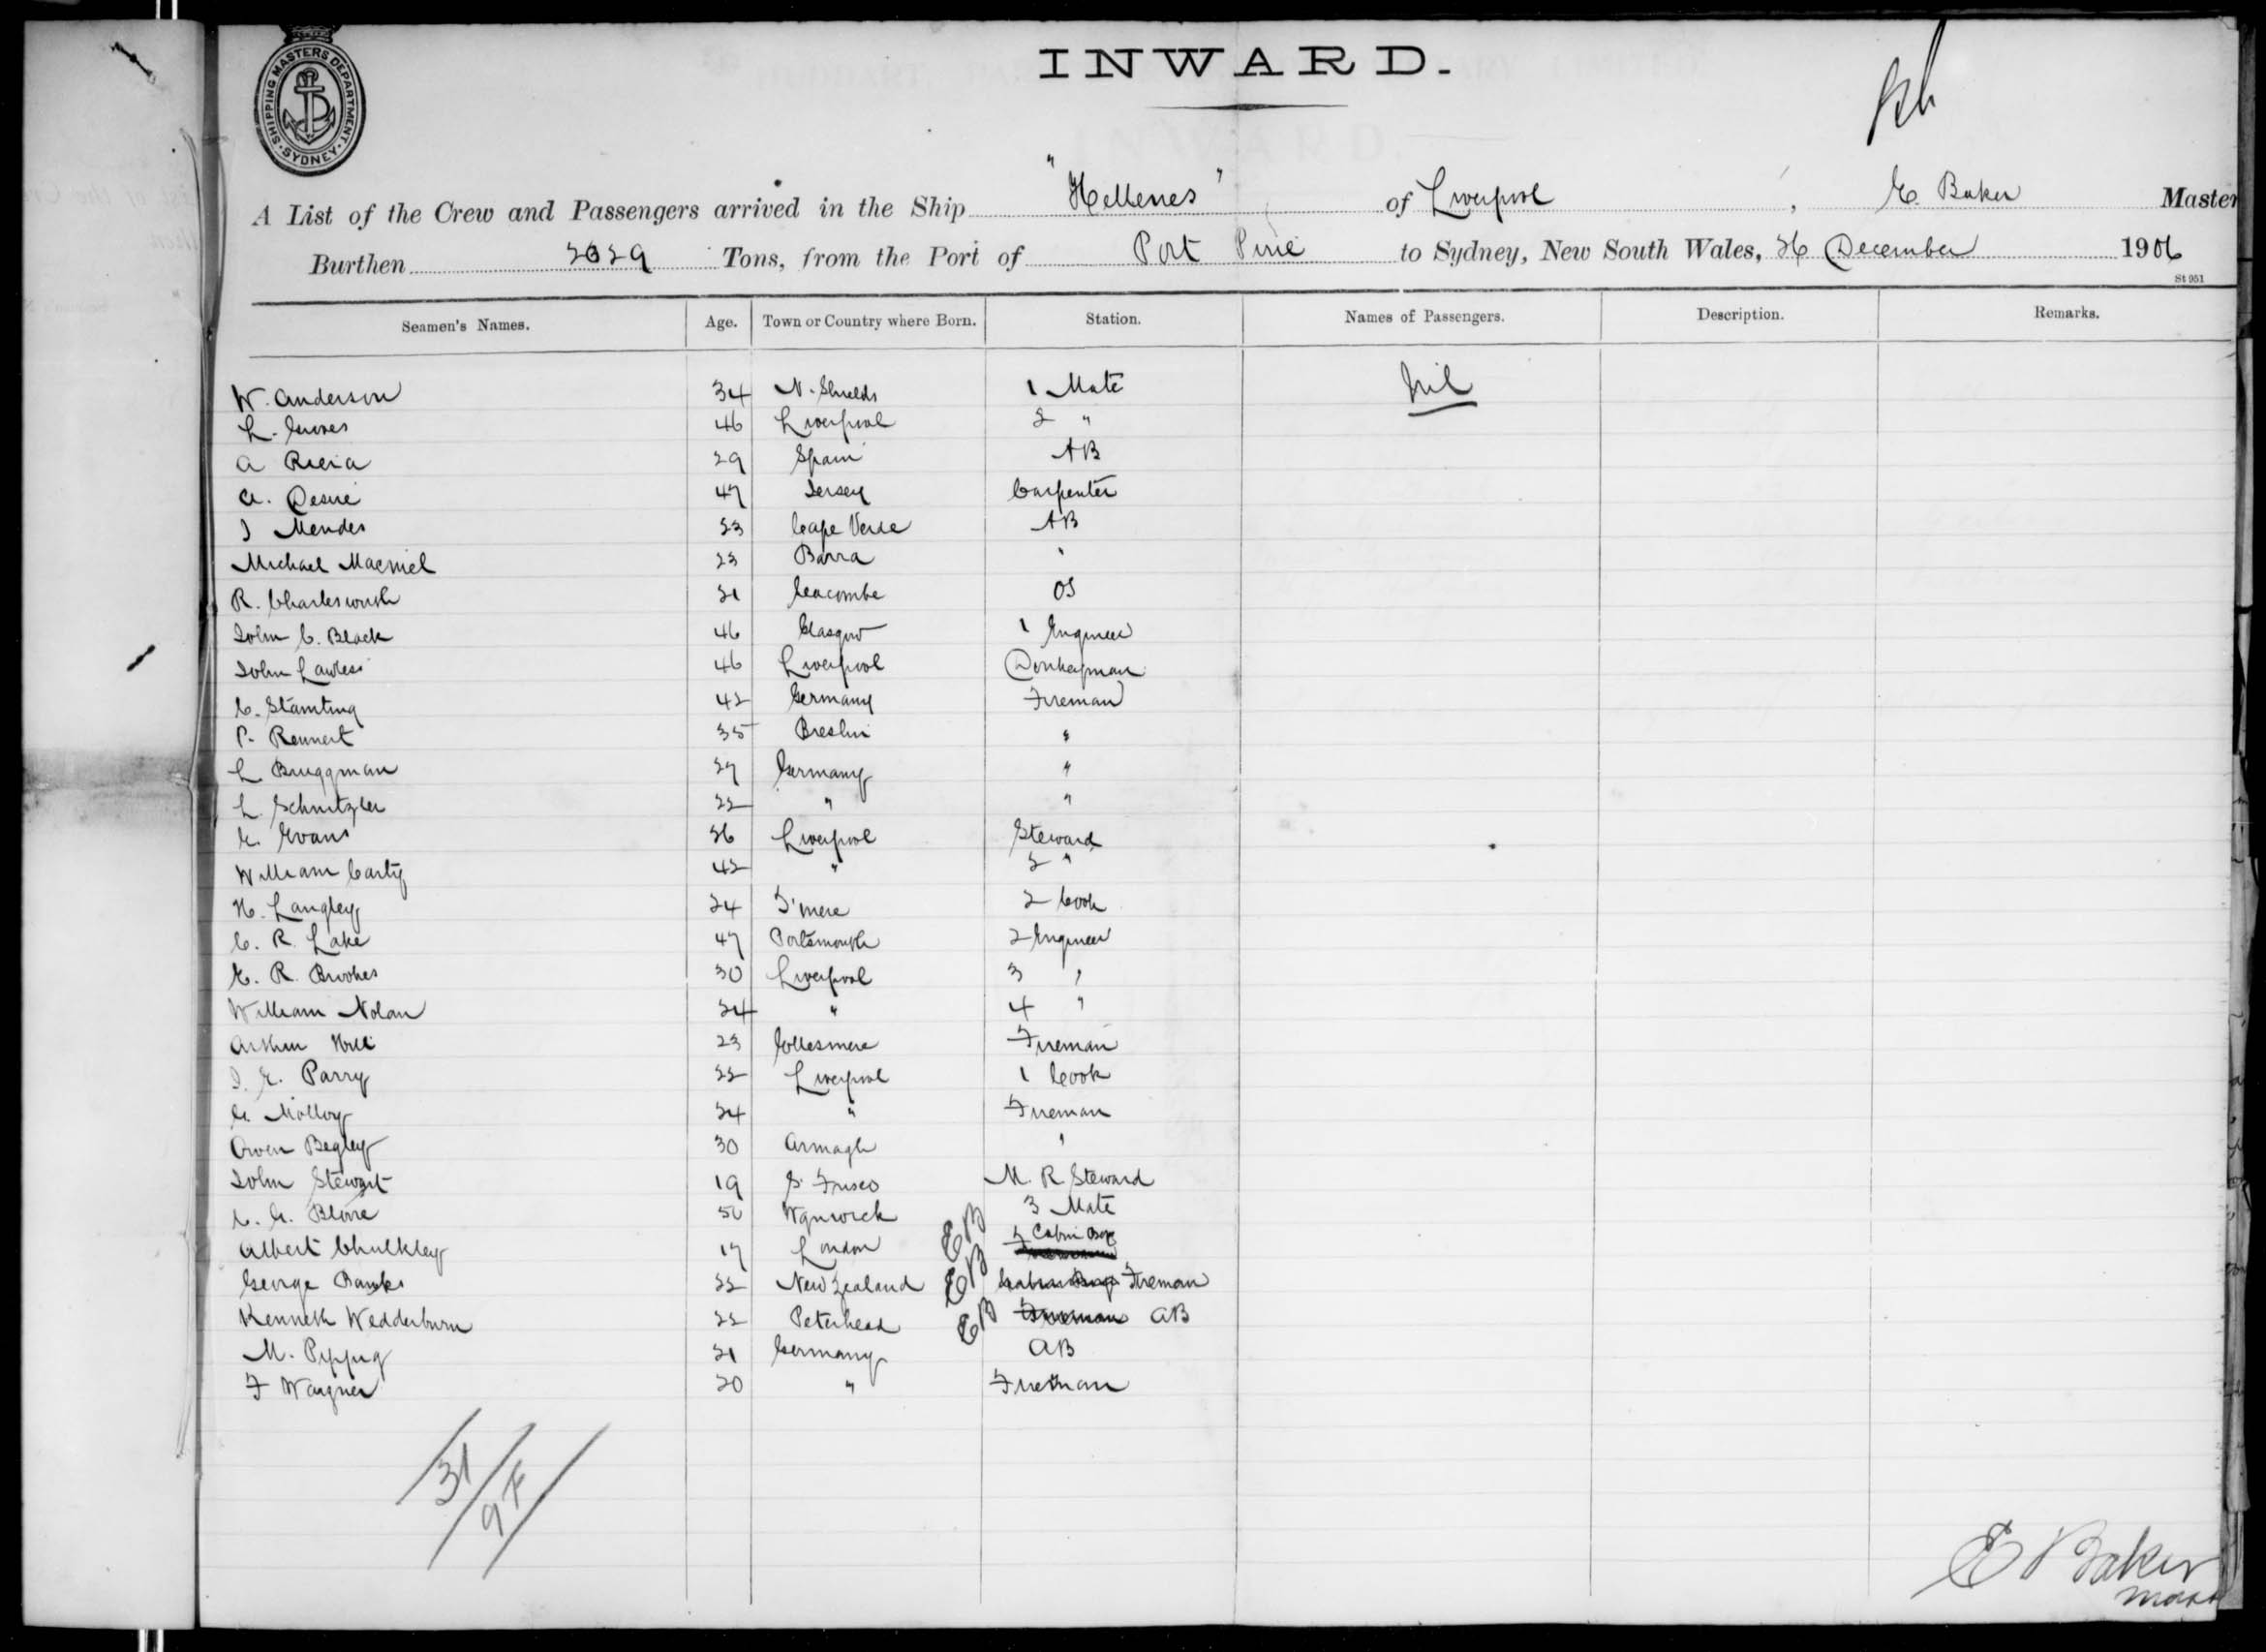 SHIPPING MASTERS DEPARTMENT. SYDNEY.
INWARD.
A List of the Crew and Passengers arrived in the Ship "Hellenes" of Liverpool, E. Baker Master
Burthen Tons, from the Port of Port Pirie to Sydney, New South Wales, 26 December 1906
St 951
Seamen's Names. Age. Town or Country where Born. Station. Names of Passengers. Description. Remarks.
W. Anderson 34 N. Shields 1 Mate Nil
L. 46 Liverpool 2 "
A 29 Spain AB
A. Desire 47 Jersey Carpenter
J Mendes 23 Cape Verde AB
Michael Macniel 23 Barra "
R. Charlesworth 21 Seacombe OS
John C. Black 46 Glasgow 1 Engineer
John Lawless 46 Liverpool Donkeyman
C. Stamting 42 Germany Fireman
P. Rennert 35 "
L Bruggman 27 Germany "
L. Schnitzler 22 " "
E. Evans 26 Liverpool Steward
William Carty 42 " 2 "
H. Langley 24 2 Cook
C. R. Lake 47 Portsmouth 2 Engineer
E. R. Brookes 30 Liverpool 3 "
William Nolan 24 " 4 "
Arthur Hill 23 Ellesmere Fireman
J. E. Parry 22 Liverpool 1 Cook
Molloy 24 " Fireman
Owen Begley 30 Armagh "
John Stewart 19 S. Frisco M. R Steward
C. 50 3 Mate
Albert Chulkley 17 London EB Cabin Boy
George Banks 22 New Zealand EB Cabin Boy Fireman
Kenneth Wedderburn 22 Peterhead EB Fireman AB
M. Pippig 21 Germany AB
F Wagner 20 " Fireman
31
9F
E Baker